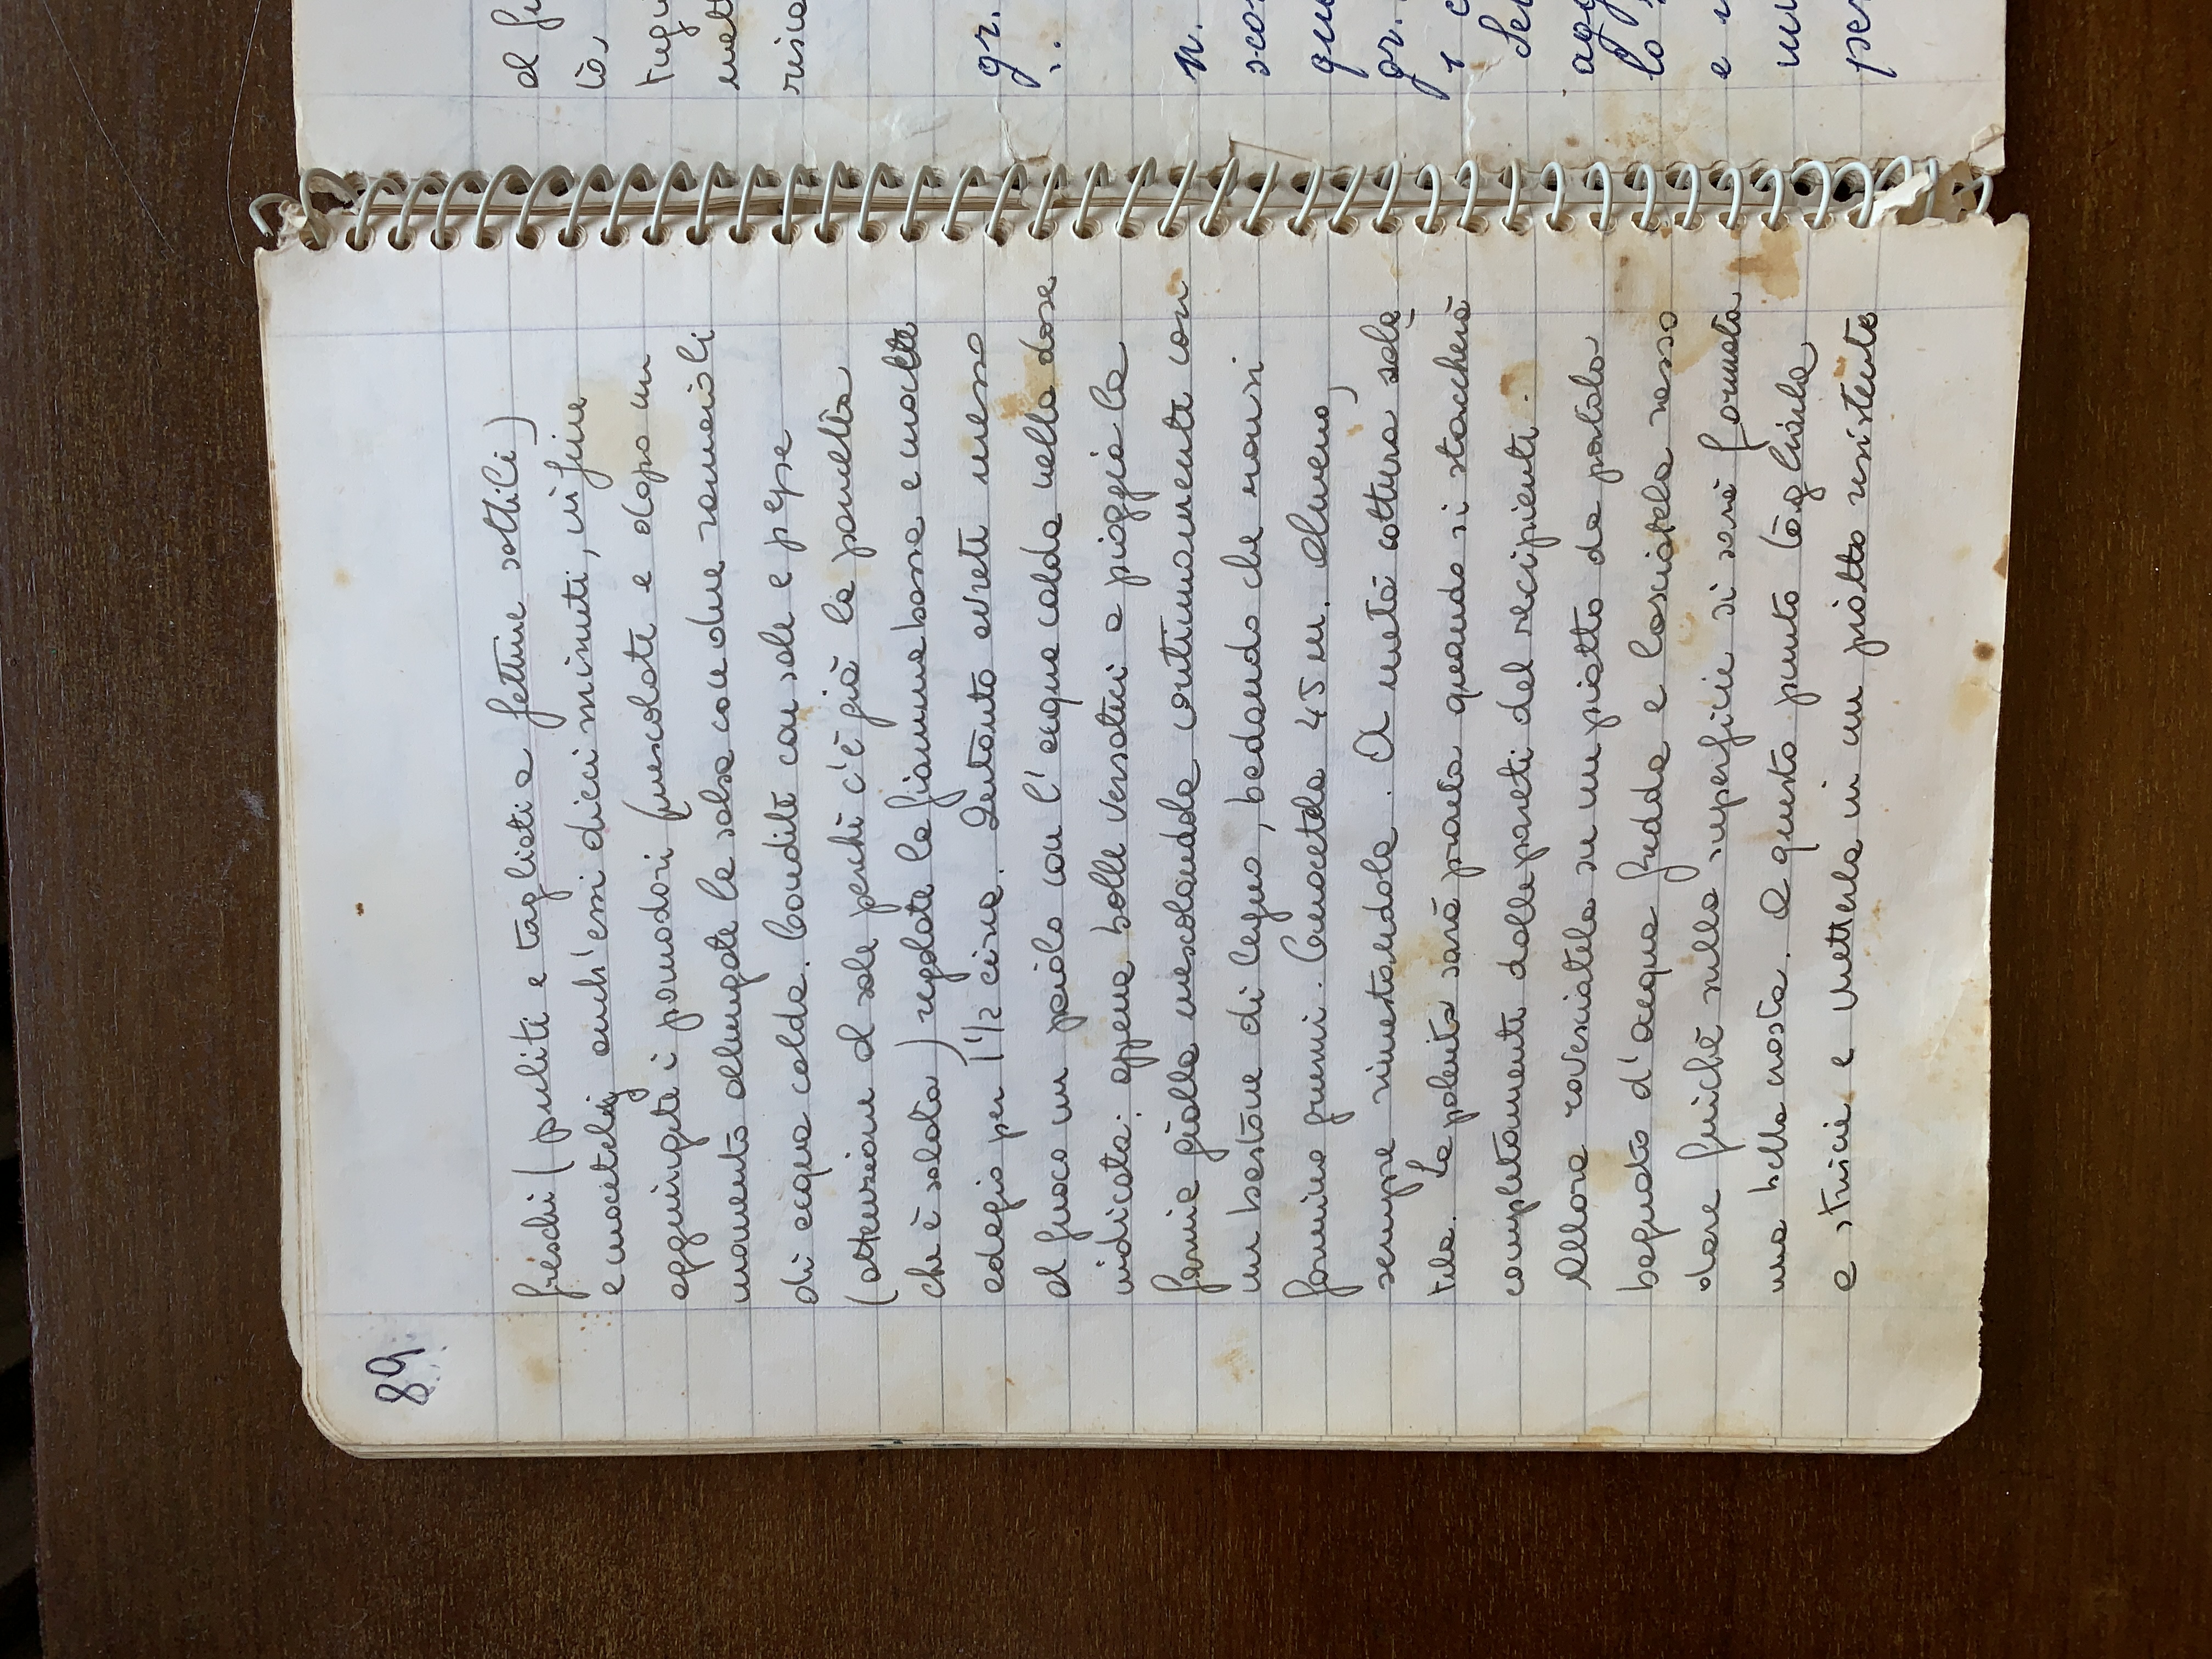 89.
freschi (puliti e tagliati a fettine sottili)
e cuocetelij anch'essi dieci minuti, infine
aggiungete i pomodori (mescolate e dopo un
momento allungate la salsa con due ramaioli
di acqua calda. Condite con sale e pepe
(attenzione al sale perchè c'è già la pancetta
che è salata) regolate la fiamma bassa e
adagio per 1 1/2 circa. Intanto avrete messo
al fuoco un paiolo con l'acqua calda nella dose
indicata: appena bolle versateci a pioggia la
farina gialla mescolandola continuamente con
un bastone di legno, badando che non si
formino grumi. Cuocetela 45 m. almeno,
sempre rimestandola. A metà cottura sala
tela. La polenta sarà pronta quando si staccherà
completamente dalle pareti del recipiente.
Allora rovesciatela su un piatto da portata
bagnato d'acqua fredda e lasciatela rasso
dare finchè sulla superficie si sarà formata
una bella crosta. A questo punto tagliarla
a striscie e metterla in un piatto resistente
al fu
tò,
tegu
mett
risca
gr.
n.
scor
que
gr.
1 c
Ser
agg
lo
e
per